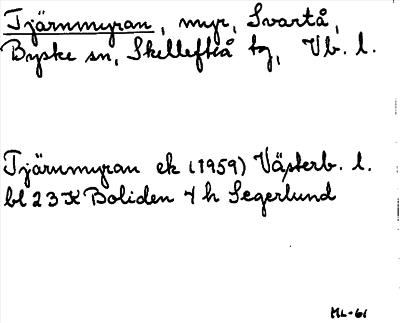 Tjärnmyran, myr, Svartå,
Byske sn, Skellefteå tg, Vb. l.
Tjärnmyran ek (1959) Västerb. l.
bl 23 K Boliden 4 h Segerlund
ML-61